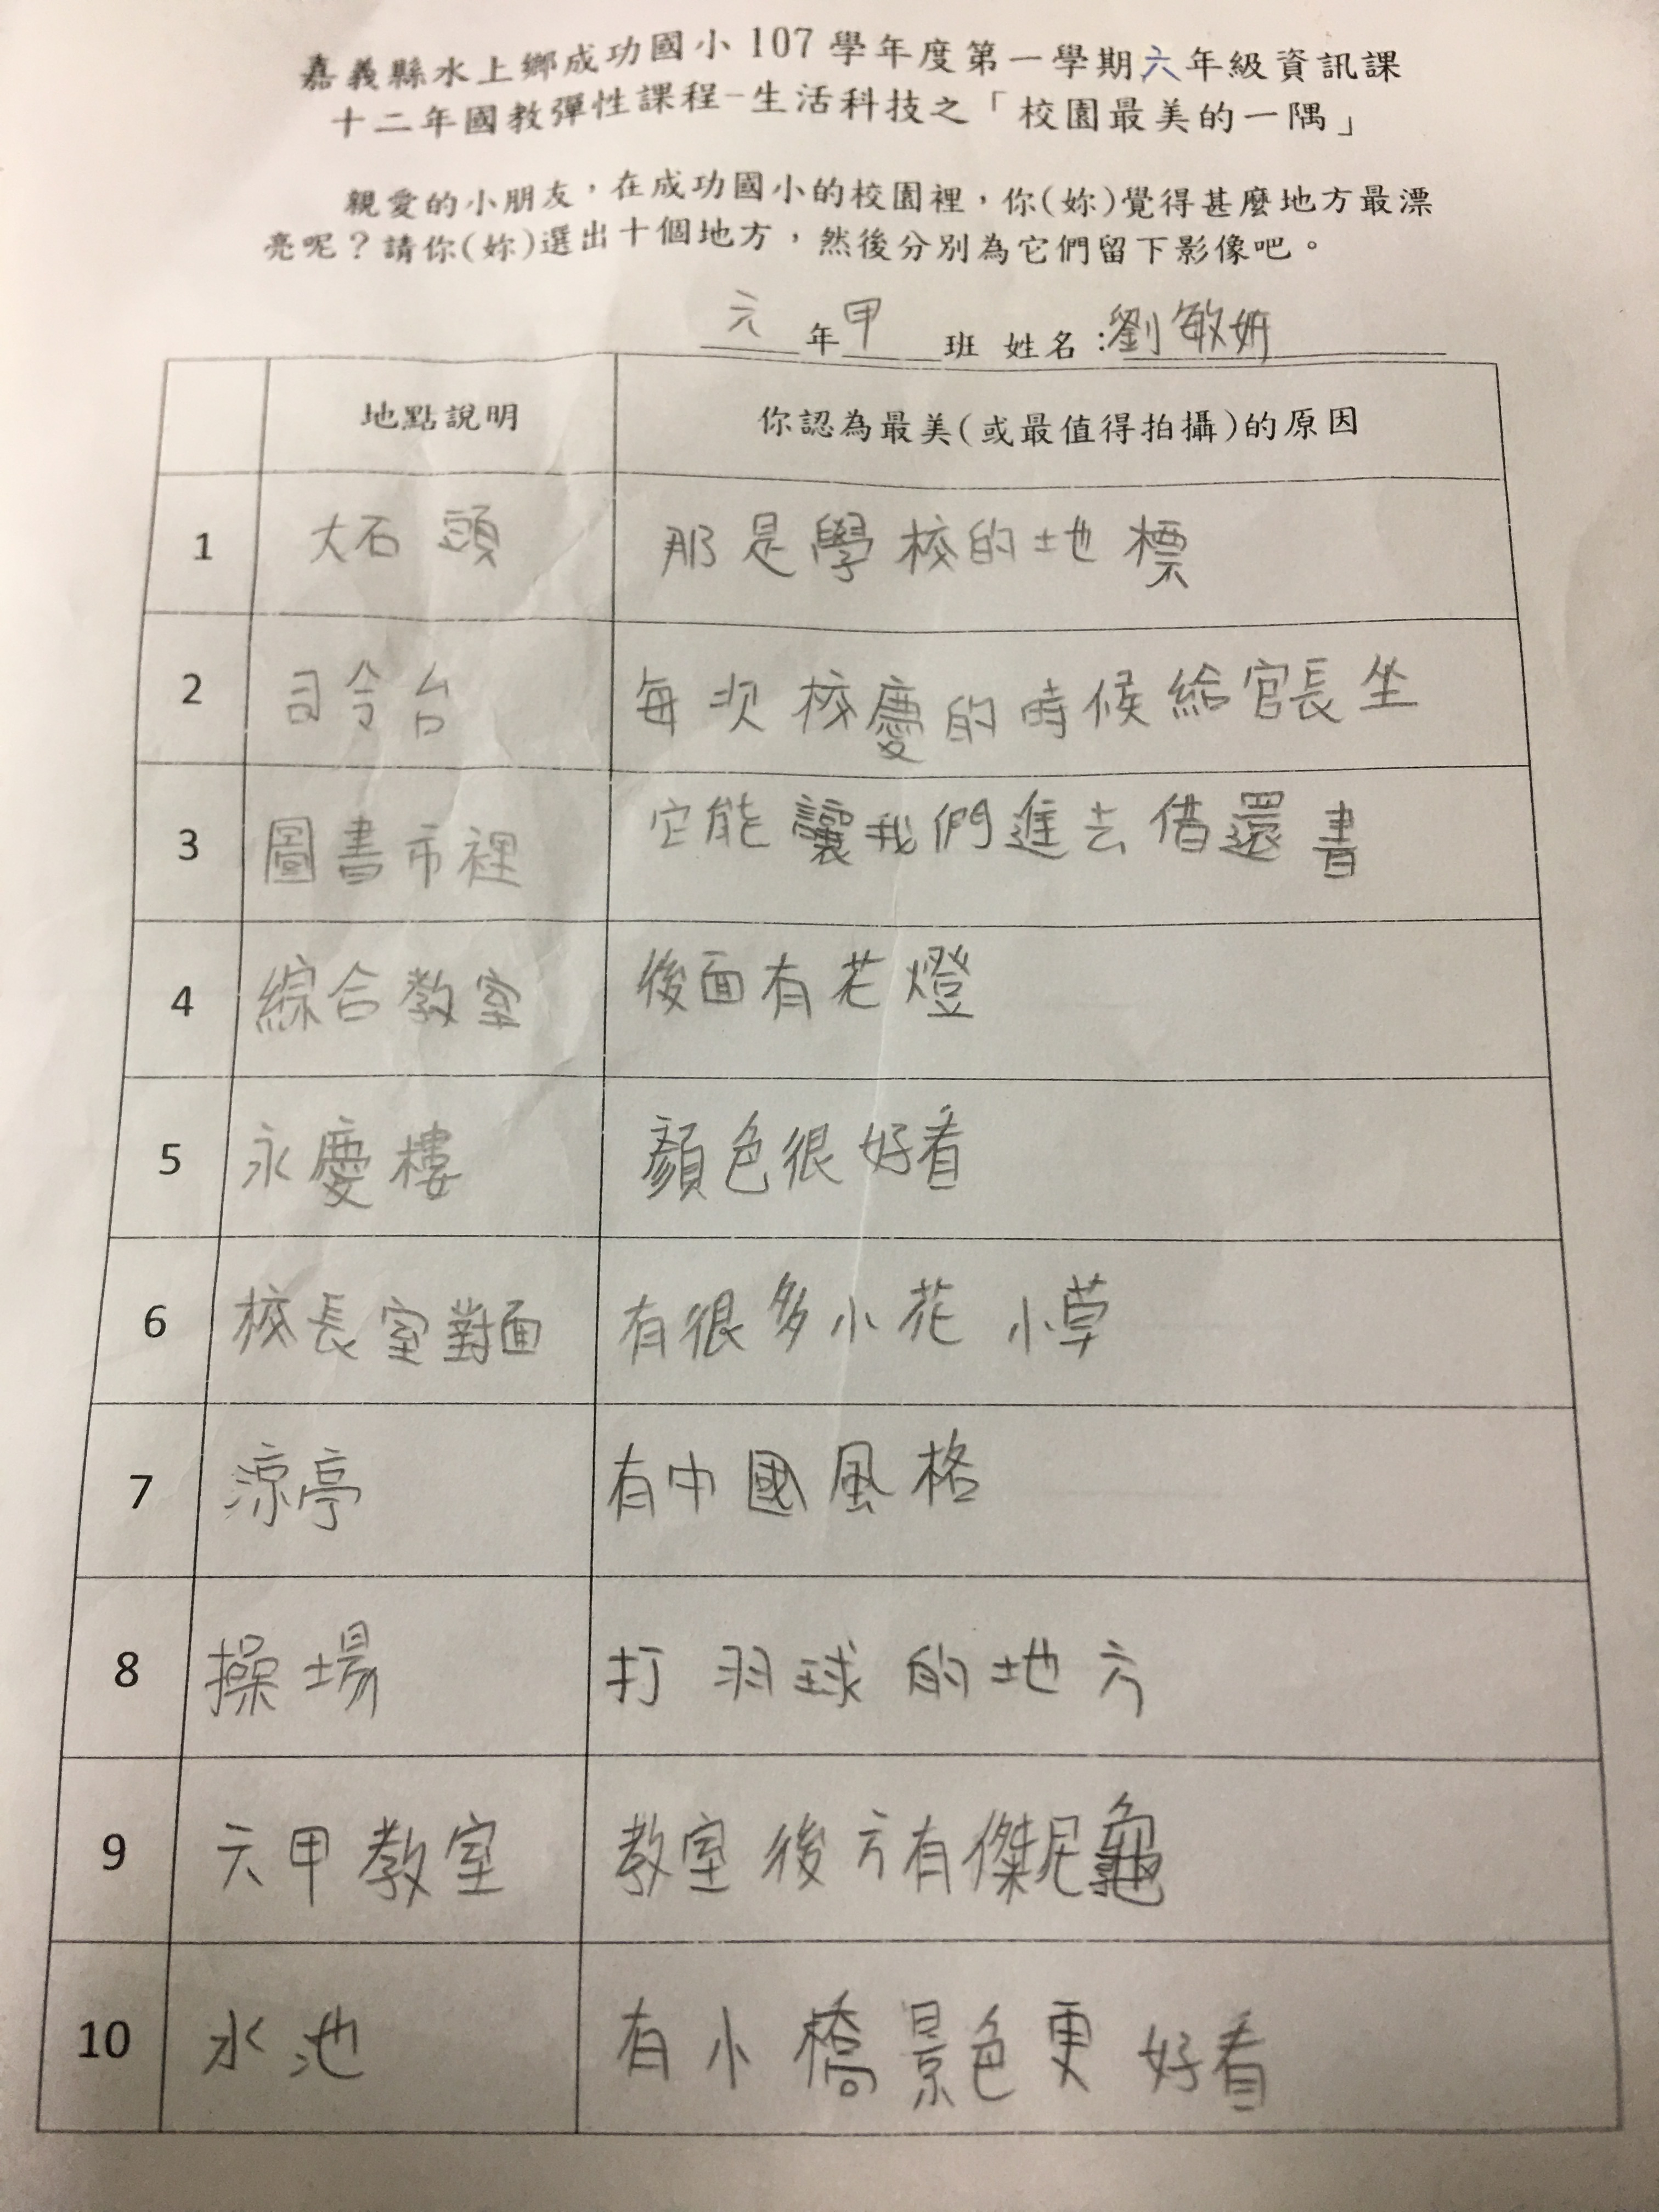 嘉義縣水上鄉成功國小107學年度第一學期六年級資訊課
十二年國教彈性課程-生活科技之「校園最美的一隅」
親愛的小朋友，在成功國小的校園裡，你(妳)覺得甚麼地方最漂
亮呢？請你(妳)選出十個地方，然後分別為它們留下影像吧。
六年甲班 姓名：劉敏妍
地點說明 你認為最美(或最值得拍攝)的原因
1 大石頭 那是學校的地標
2 司令台 每次校慶的時候給官長坐
3 圖書市裡 它能讓我們進去借還書
4 綜合教室 後面有花燈
5 永慶樓 顏色很好看
6 校長室對面 有很多小花小草
7 涼亭 有中國風格
8 操場 打羽球的地方
9 六甲教室 教室後方有傑尼龜
10 水池 有小橋景色更好看